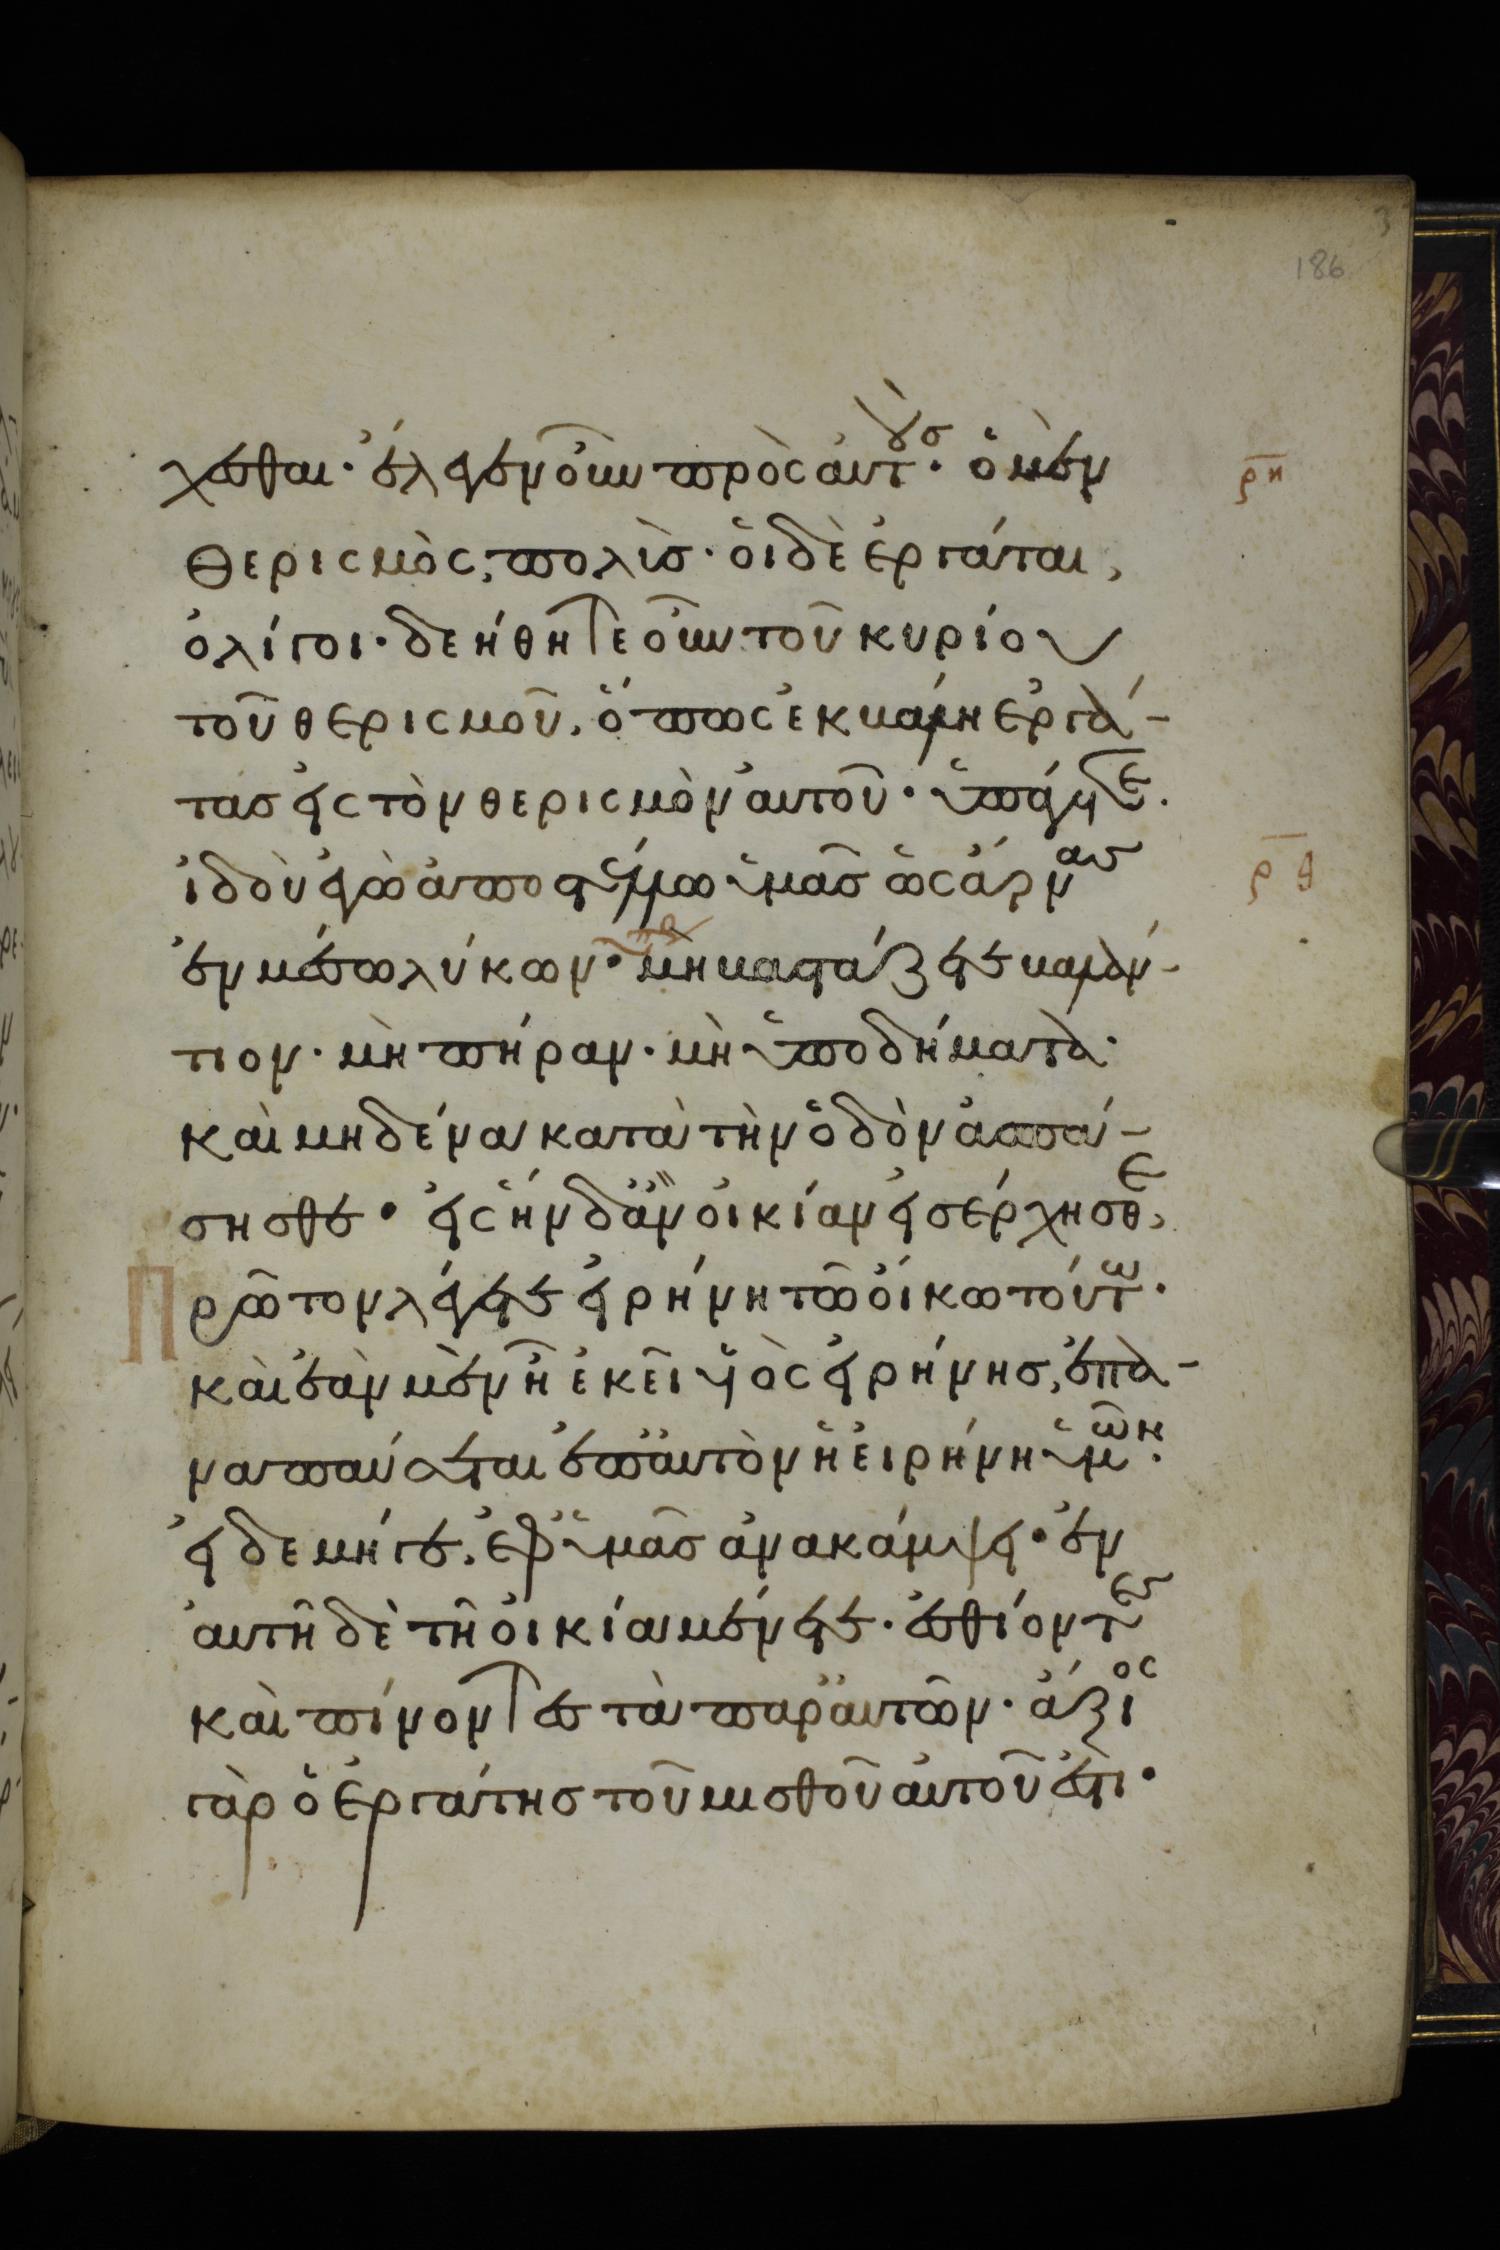 186
χεσθαι· ἔλεγεν οὖν πρὸς αὐτούσ· ὁ μὲν
ρη
θερισμὸς, πολὺσ· οἱ δὲ ἐργάται,
ὀλίγοι· δεήθητε οὖν τοῦ κυρίου
τοῦ θερισμοῦ, ὅπως ἐκβάλη ἐργά-
τασ εἰς τὸν θερισμὸν αὐτοῦ· ὑπάγετε.
ἰδοὺ ἐγὼ ἀποστέλλω ὑμᾶσ ὡς ἄρνασ
ρθ
ἐν μέσω λύκων· μὴ βαστάζετε βαλάν-
τιον· μὴ πήραν· μὴ ὑποδήματα·
καὶ μηδένα κατὰ τὴν ὁδὸν ἀσπά-
σησθε· εἰς ἣν δἂν οἰκίαν εἰσέρχησθε,
Πρῶτον λέγετε εἰρήνη τῶ οἴκω τούτω·
καὶ ἐὰν μὲν ἦ ἐκεῖ υἱὸς εἰρήνησ, ἐπα-
ναπαύσεται ἐπ' αὐτὸν ἡ εἰρήνη ὑμῶν·
εἰ δὲ μήγε, ἐφ' ὑμᾶσ ἀνακάμψει· ἐν
αὐτῆ δὲ τῆ οἰκία μένετε· ἐσθίοντεσ
καὶ πίνοντεσ τὰ παρ' αὐτῶν· ἄξιος
γὰρ ὁ ἐργάτησ τοῦ μισθοῦ αὐτοῦ ἐστι·